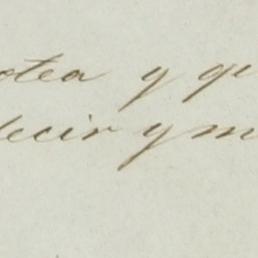 otea y qu
decir y m